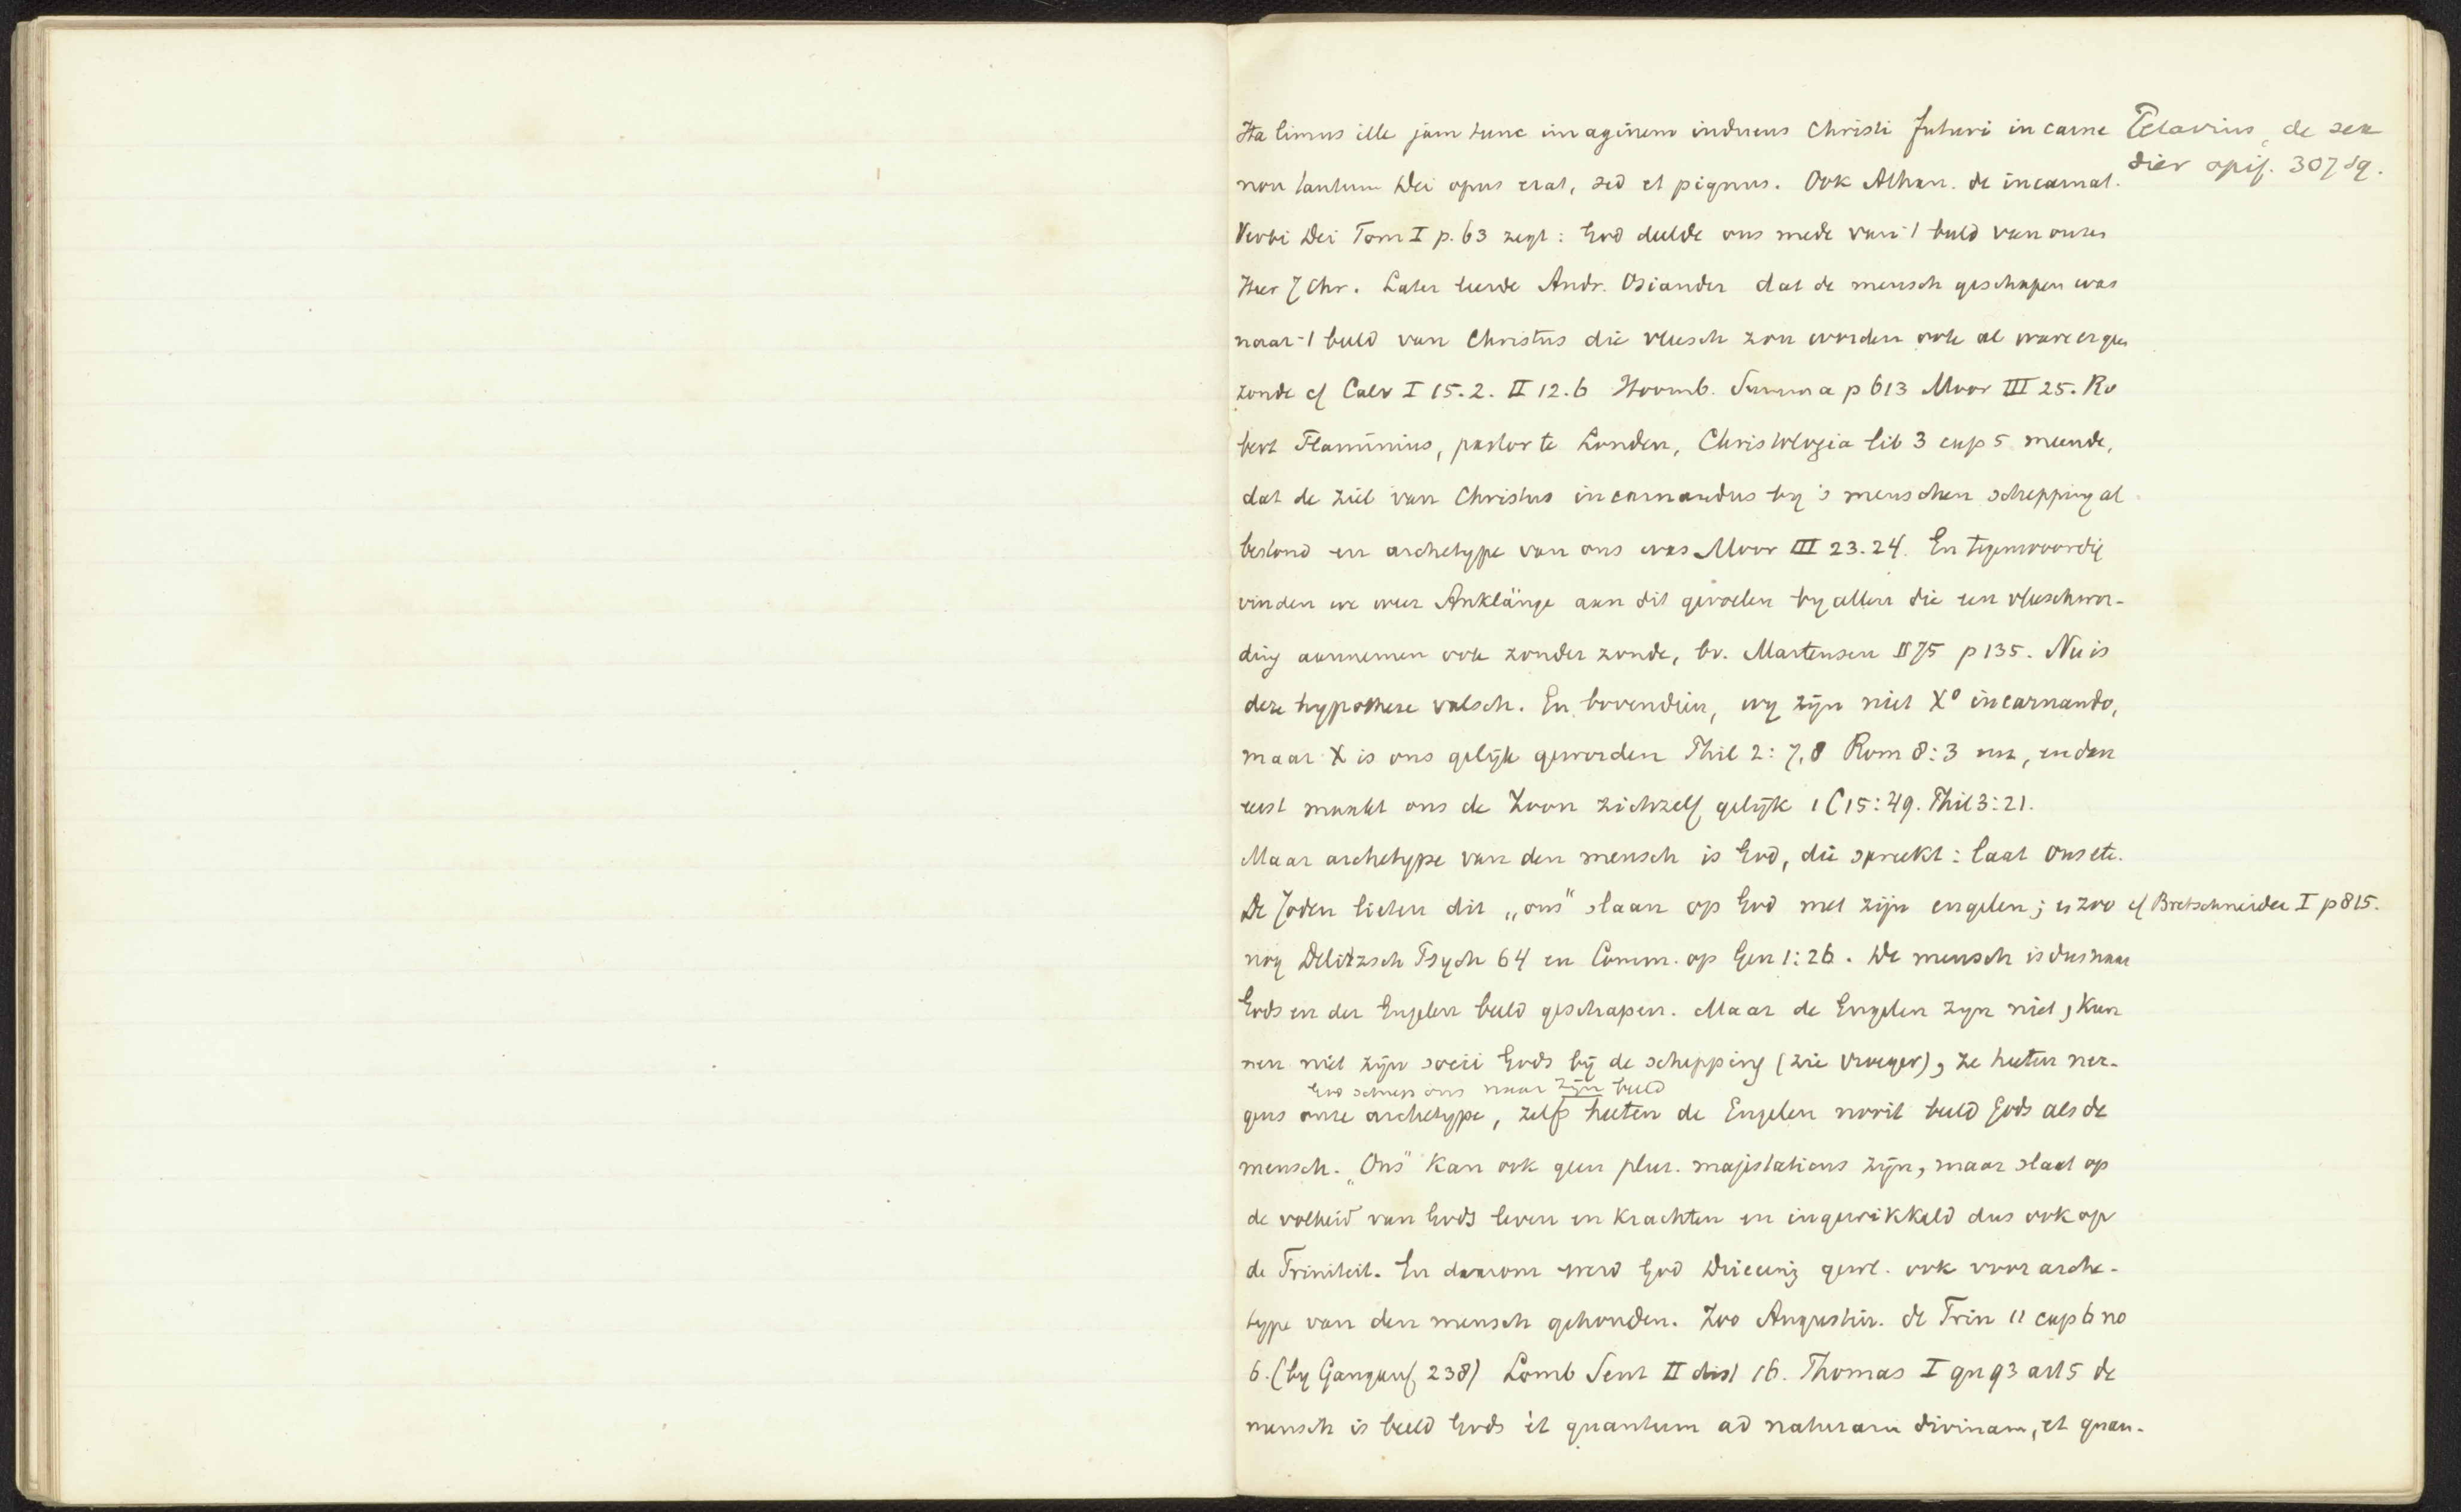 Ita limus ille jam tunc imaginem induens Christi futuri in carne
non tantum Dei opus erat, sed et pignus. Ook Athan. de incarnat.
Verbi Dei Tom I p. 63 zegt: God deelde ons mede van 't beeld van onzen
Heer J Chr. Later leerde Andr. Osiander dat de mensch geschapen was
naar 't beeld van Christus die vleesch zou worden ook al ware er geen
zonde cf Calv I 15.2. II 12.6 Hoornb. Summa p 613 Moor III 25. Ro
bert Flaminius, pastor te Londen, Christologia lib 3 cap 5 meende,
dat de ziel van Christus incarnandus by 's menschen schepping al
bestond en archetype van ons was Moor III 23.24. En tegenwoordig
vinden we weer Anklänge aan dit gevoelen by allen die een vleeschwor-
ding aannemen ook zonder zonde, bv. Martensen II 75 p 135. Nu is
deze hypothese valsch. En bovendien, wy zijn niet Xo incarnando,
maar X is ons gelijk geworden Phil 2:7,8 Rom 8:3 enz, en dan
eerst maakt ons de Zoon zichzelf gelijk 1 C 15:49. Phil 3:21.
Maar archetype van den mensch is God, die spreekt: laat Ons etc.
De Joden lieten dit „ons" slaan op God met zijn engelen; en zoo
nog Delitzsch Psych 64 en Comm. op Gen 1:26. De mensch is dus naar
Gods en der Engelen beeld geschapen. Maar de Engelen zyn niet, kun
nen niet zijn socii Gods bij de schepping (zie vroeger), ze heeten ner-
God schiep ons naar zijn beeld
gens onze archetype, zelfs heeten de Engelen nooit beeld Gods als de
mensch. „Ons" kan ook geen plur. majestaticus zijn, maar slaat op
de volheid van Gods leven en krachten en ingewikkeld dus ook op
de Triniteit. En daarom werd God Drieeenig gewl. ook voor arche-
type van den mensch gehouden. Zoo Augustin. de Trin 11 cap 6 no
6. (by Gangauf 238) Lomb Sent II dist 16. Thomas I qu 93 art 5 de
mensch is beeld Gods et quantum ad naturam divinam, et quan-
Petavius, de sex
dier opif. 307 sq.
cf Bretschneider I p 815.